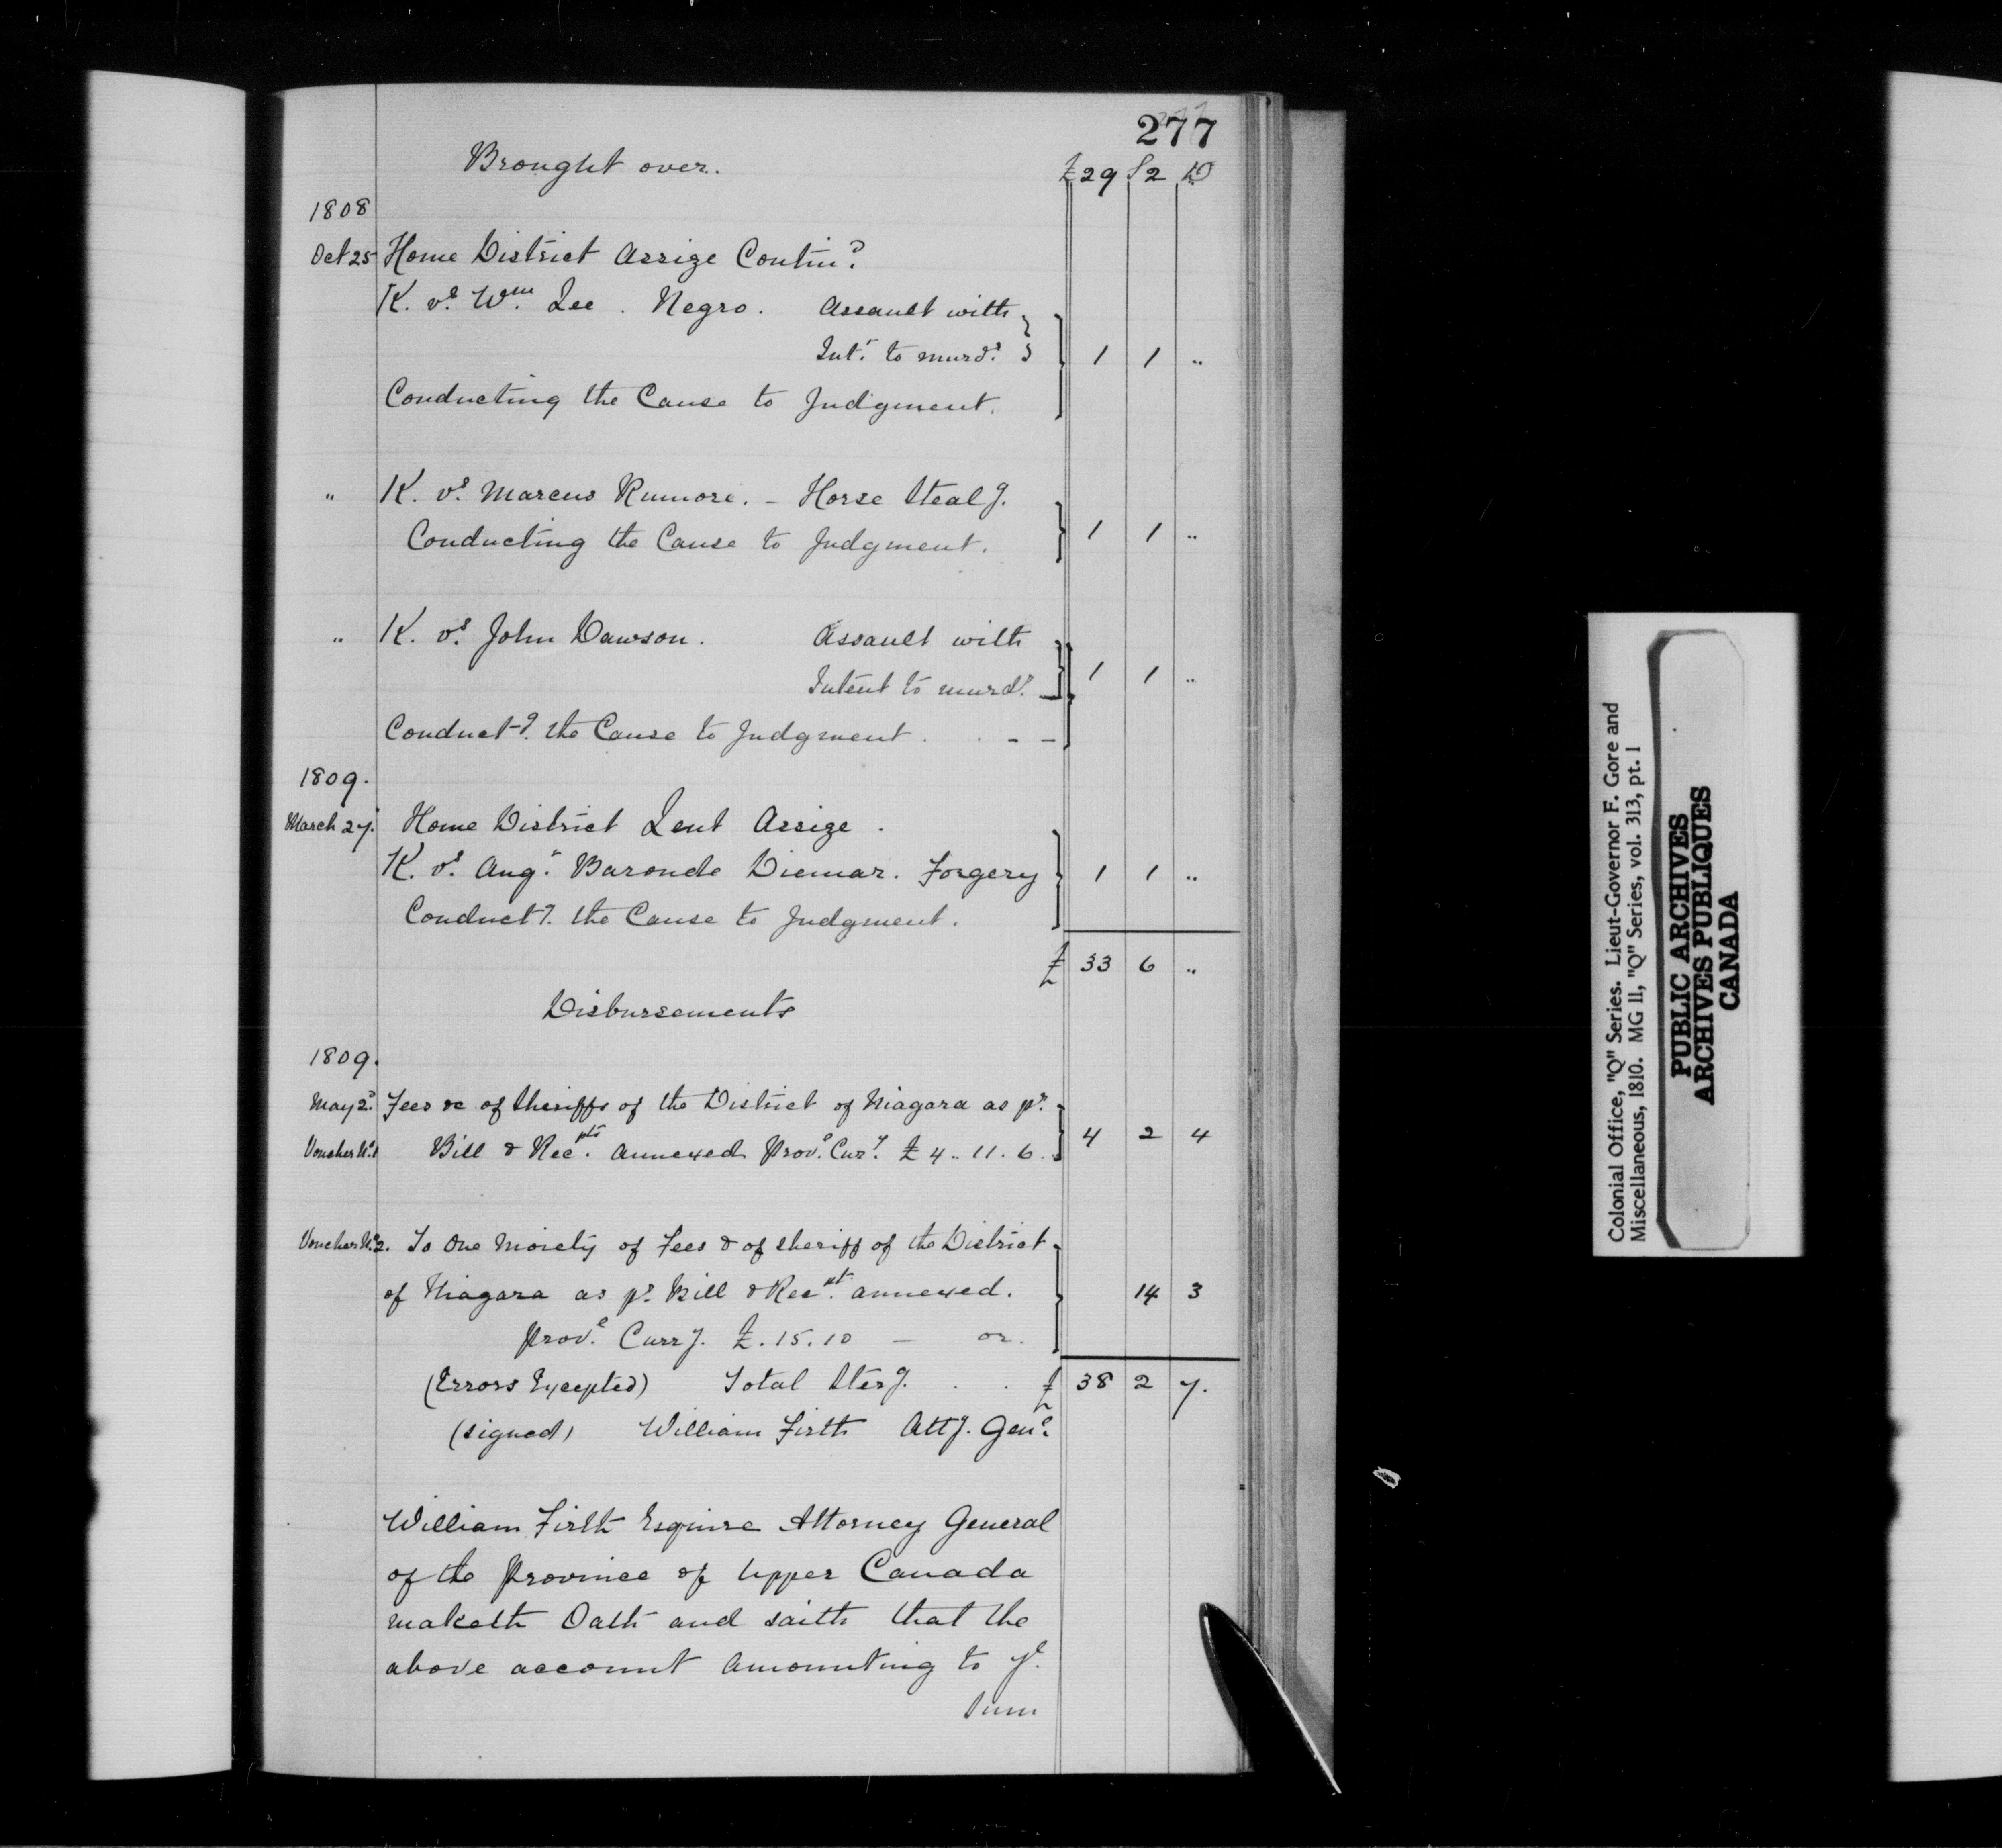 277
Brought over. £29 S2 D
1808
Oct 25 Home District Assize Contin.d
K. v.s W.m Lee. Negro. Assault with
Int.t to murd.r 1 1 "
Conducting the Cause to Judgment.
" K. v.s Marcus Rumore. - Horse Steal g.
Conducting the Cause to Judgment. 1 1 "
" K. v.s John Dawson. Assault with
Intent to murd.r 1 1 "
Conduct-g. the Cause to Judgment. - -
1809.
March 27. Home District Lent Assize.
K. v.s Aug.s Baronde Diemar. Forgery 1 1 "
Conduct g. the Cause to Judgment.
£ 33 6 "
Disbursements
1809.
May 2.d Fees &c of Sheriffs of the District of Niagara as p.r
Voucher N.o 1 Bill & Rec.pts annexed Prov.e Cur.y £4..11.6. 4 2 4
Voucher N.o 2. To One Moiety of Fees & of Sheriff of the District
of Niagara as p.r Bill & Rec.pt annexed. 14 3
Prov.e Curr y. £.15.10 - or.
(Errors Excepted) Total Ster g. . . £ 38 2 7.
(signed) William Firth Att y. Gen.l
William Firth Esquire Attorney General
of the Province of Upper Canada
maketh Oath and saith that the
above account amounting to y.e
Sum
Colonial Office, "Q" Series. Lieut-Governor F. Gore and
Miscellaneous, 1810. MG 11, "Q" Series, vol. 313, pt. 1
PUBLIC ARCHIVES
ARCHIVES PUBLIQUES
CANADA